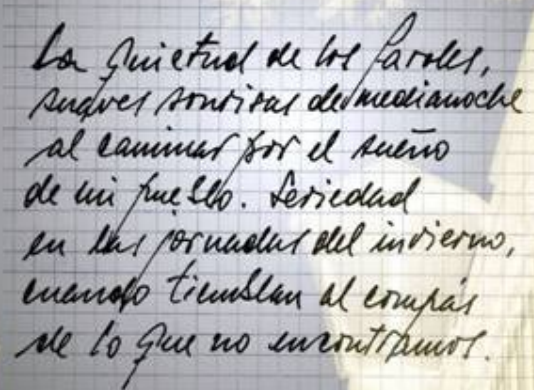 La quietud de los faroles,
suaves sonrisas de medianoche
al caminar por el sueño
de mi pueblo. Seriedad
en las jornadas del invierno,
cuando tiemblan al compás
de lo que no encontramos.